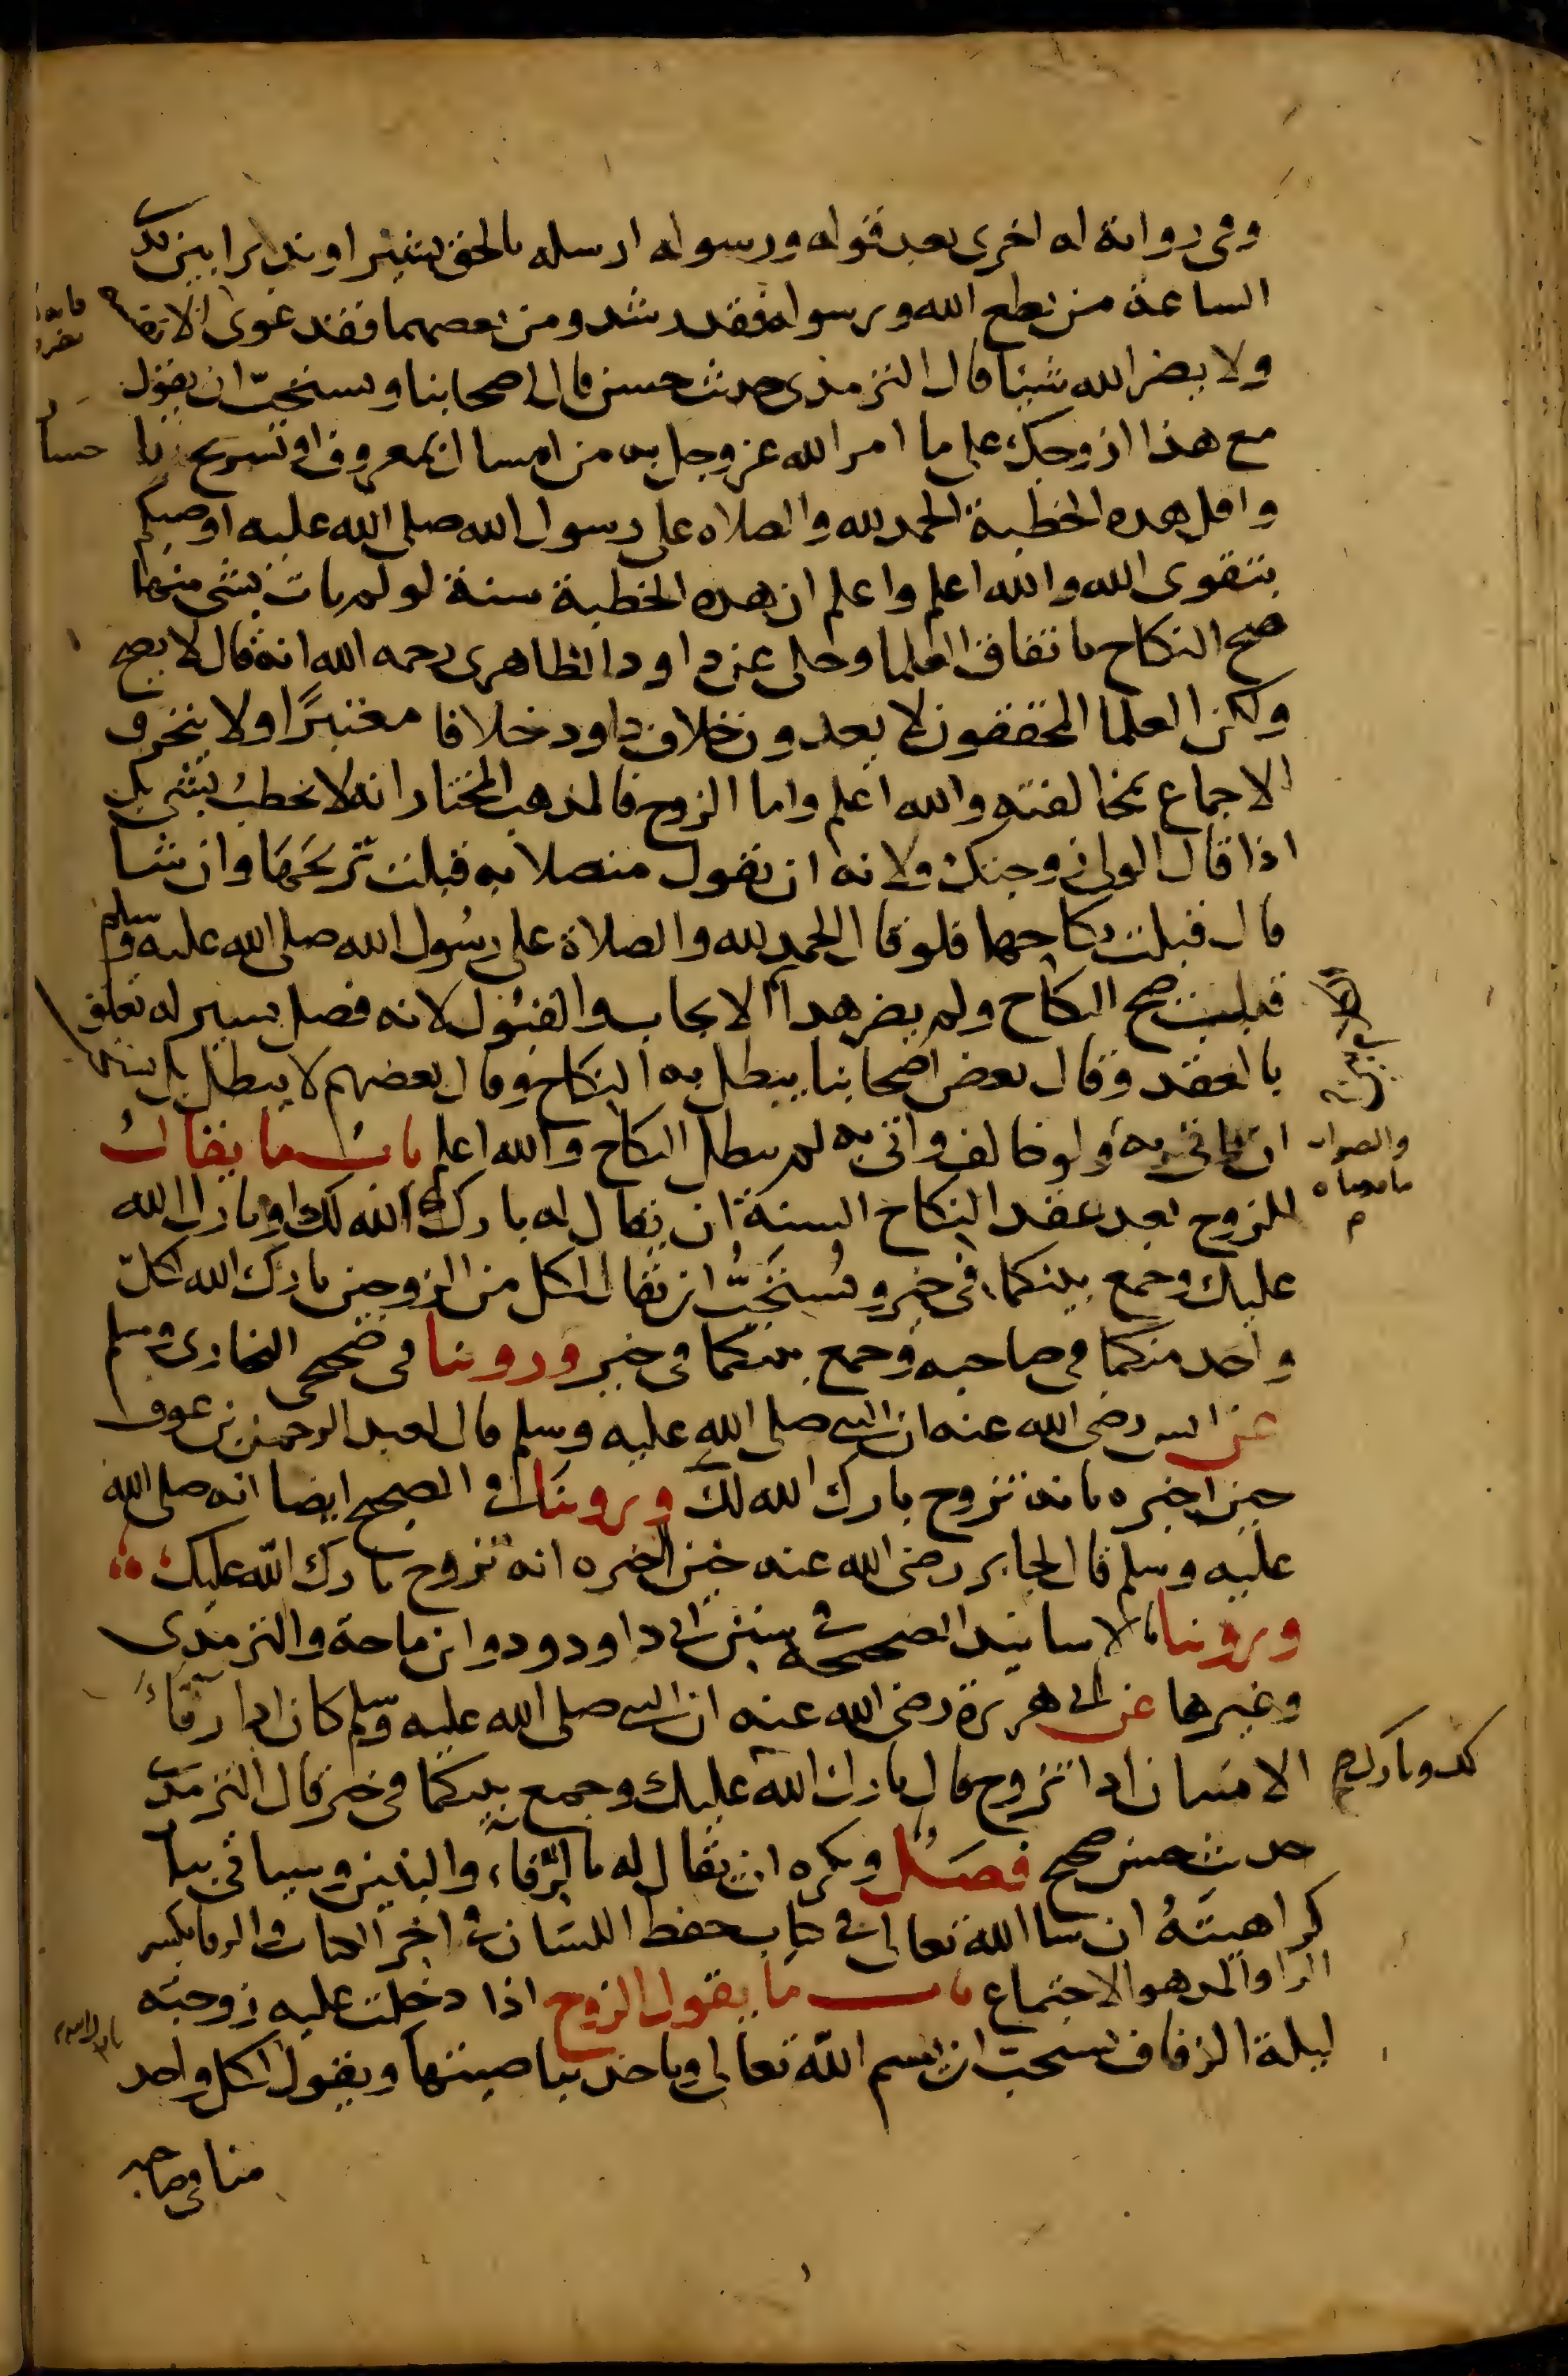 وفي رواية له اخرى بعد قوله ورسوله ارسله بالحق بشيرا ونذيرا بين يدي
الساعة من يطع الله ورسوله فقد رشد ومن يعصهما فقد غوى
ولا يضر الله شيئا قال الترمذي حديث حسن قال اصحابنا ويستحب ان يقول
مع هذا ازوجك على ما امر الله عز وجل به من امساك بمعروف او تسريح با حسان
واقل هذه الخطبة الحمد لله والصلاه على رسول الله صلى الله عليه اوصيكم
بتقوى الله والله اعلم واعلم ان هذه الخطبة سنة لو لم يات بشي منها
صح النكاح باتفاق العلما وحكى عن داود الظاهري رحمه الله انه قال لا يصح
ولكن العلما المحققون لا يعدون خلاف داود خلافا معتبرًا ولا ينخرق
الاجماع بمخالفته والله اعلم واما الزوج فالمذهب المختار انه لا يخطب بشي بل
اذا قال الولي زوجتك فلانه ان يقول متصلا به قبلت تزويجها وان شا
قال قبلت نكاحها فلو قال الحمد لله والصلاة على رسول الله صلى الله عليه وسلم
قبلت صح النكاح ولم يضر هذا الايجاب والقبول لانه فصل يسير له تعلق
بالعقد وقال بعض اصحابنا يبطل به النكاح وقال بعضهم لا يبطل بل يستحب
ان ياتي به ولو خالف واتى به لم يبطل النكاح والله اعلم باب ما يقال
للزوج بعد عقد النكاح السنة ان يقال له بارك الله لك او بارك الله
عليك وجمع بينكما في خير ويستحب ان يقال لكل من الزوجين بارك الله لكل
واحد منكما في صاحبه وجمع بينكما في خير وروينا في صحيحي البخاري ومسلم
عن انس رضي الله عنه ان النبي صلى الله عليه وسلم قال لعبد الرحمن بن عوف
حين اخبره بانه تزوج بارك الله لك وروينا في الصحيح ايضا انه صلى الله
عليه وسلم قال لجابر رضي الله عنه حين اخبره انه تزوج بارك الله عليك
وروينا بالاسانيد الصحيحة في سنن ابي داود وابن ماجة والترمذي
وغيرها عن ابي هريرة رضي الله عنه ان النبي صلى الله عليه وسلم كان اذا رفأ
الانسان اذا تزوج قال بارك الله عليك وجمع بينكما في خير قال الترمذي
حديث حسن صحيح فصل ويكره ان يقال له بالرفاء والبنين وسياتي بيا
كراهيته ان شا الله تعالى في كتاب حفظ اللسان في اخر الكتاب والرفا بكسر
الرا والمد هو الاجتماع باب ما يقول الزوج اذا دخلت عليه زوجته
ليلة الزفاف يستحب ان يسم الله تعالى وياخذ بناصيتها ويقول لكل واحد
منا في صاحبه
والصواب
ما قدمناه
م
لك وبارك